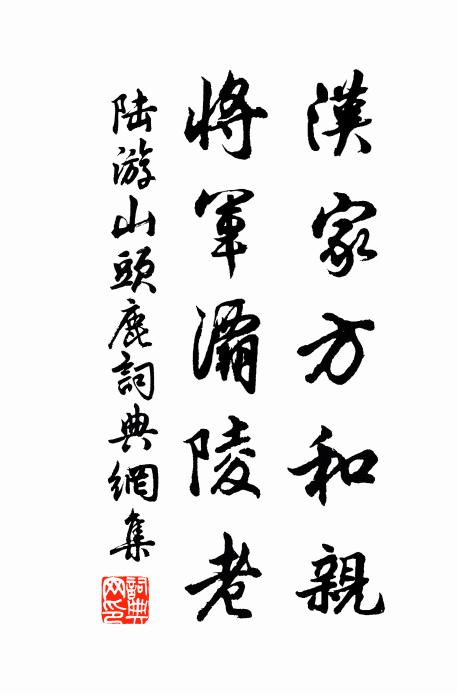 漢家方和親
將軍灞陵老
陸游山頭鹿詞典網集
詞典網印